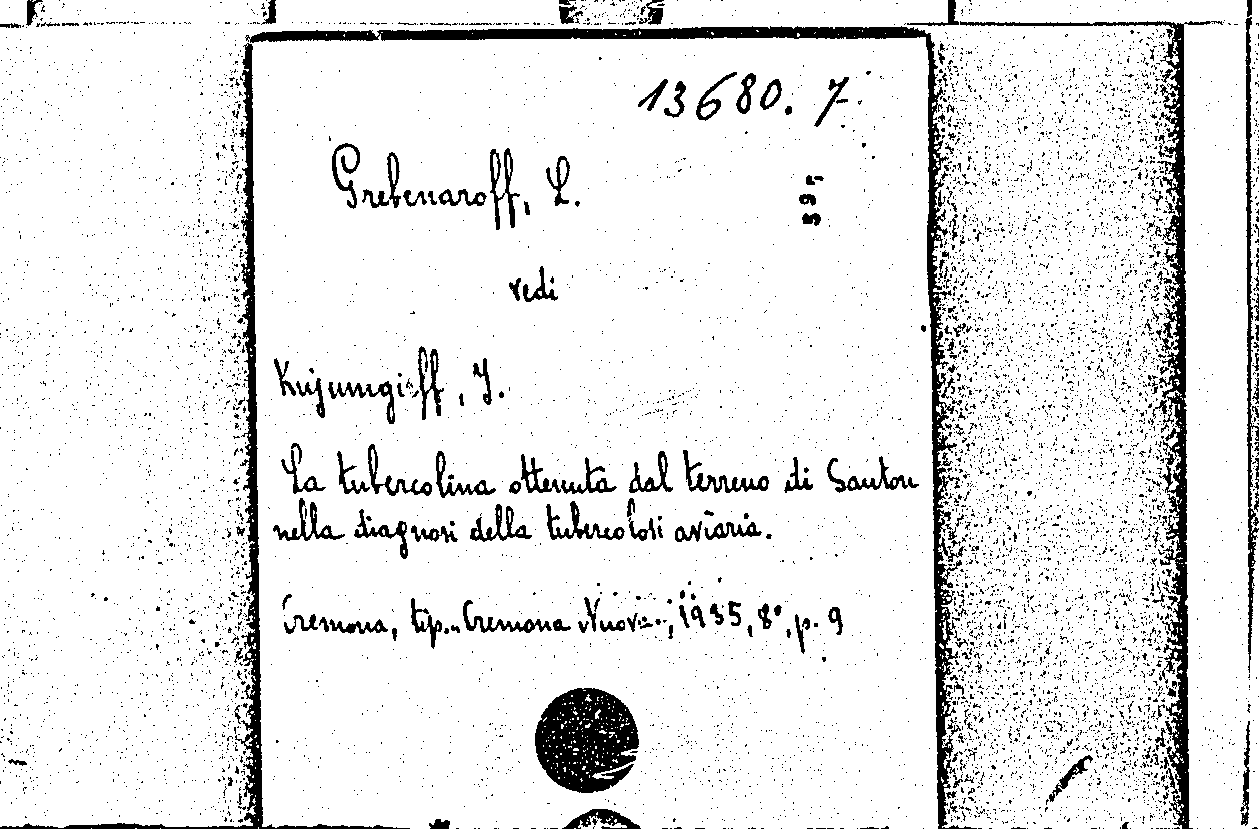 13680. 7
Grebenaroff, L.
vedi
Kujumgieff, I.
La tubercolina ottenuta dal terreno di Sauton
nella diagnosi della tubercolosi aviaria.
Cremona, tip. "Cremona Nuova", 1935, 8°, p. 9